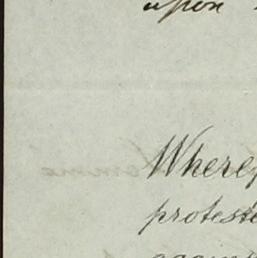 upon
Wheref
proteste
agains